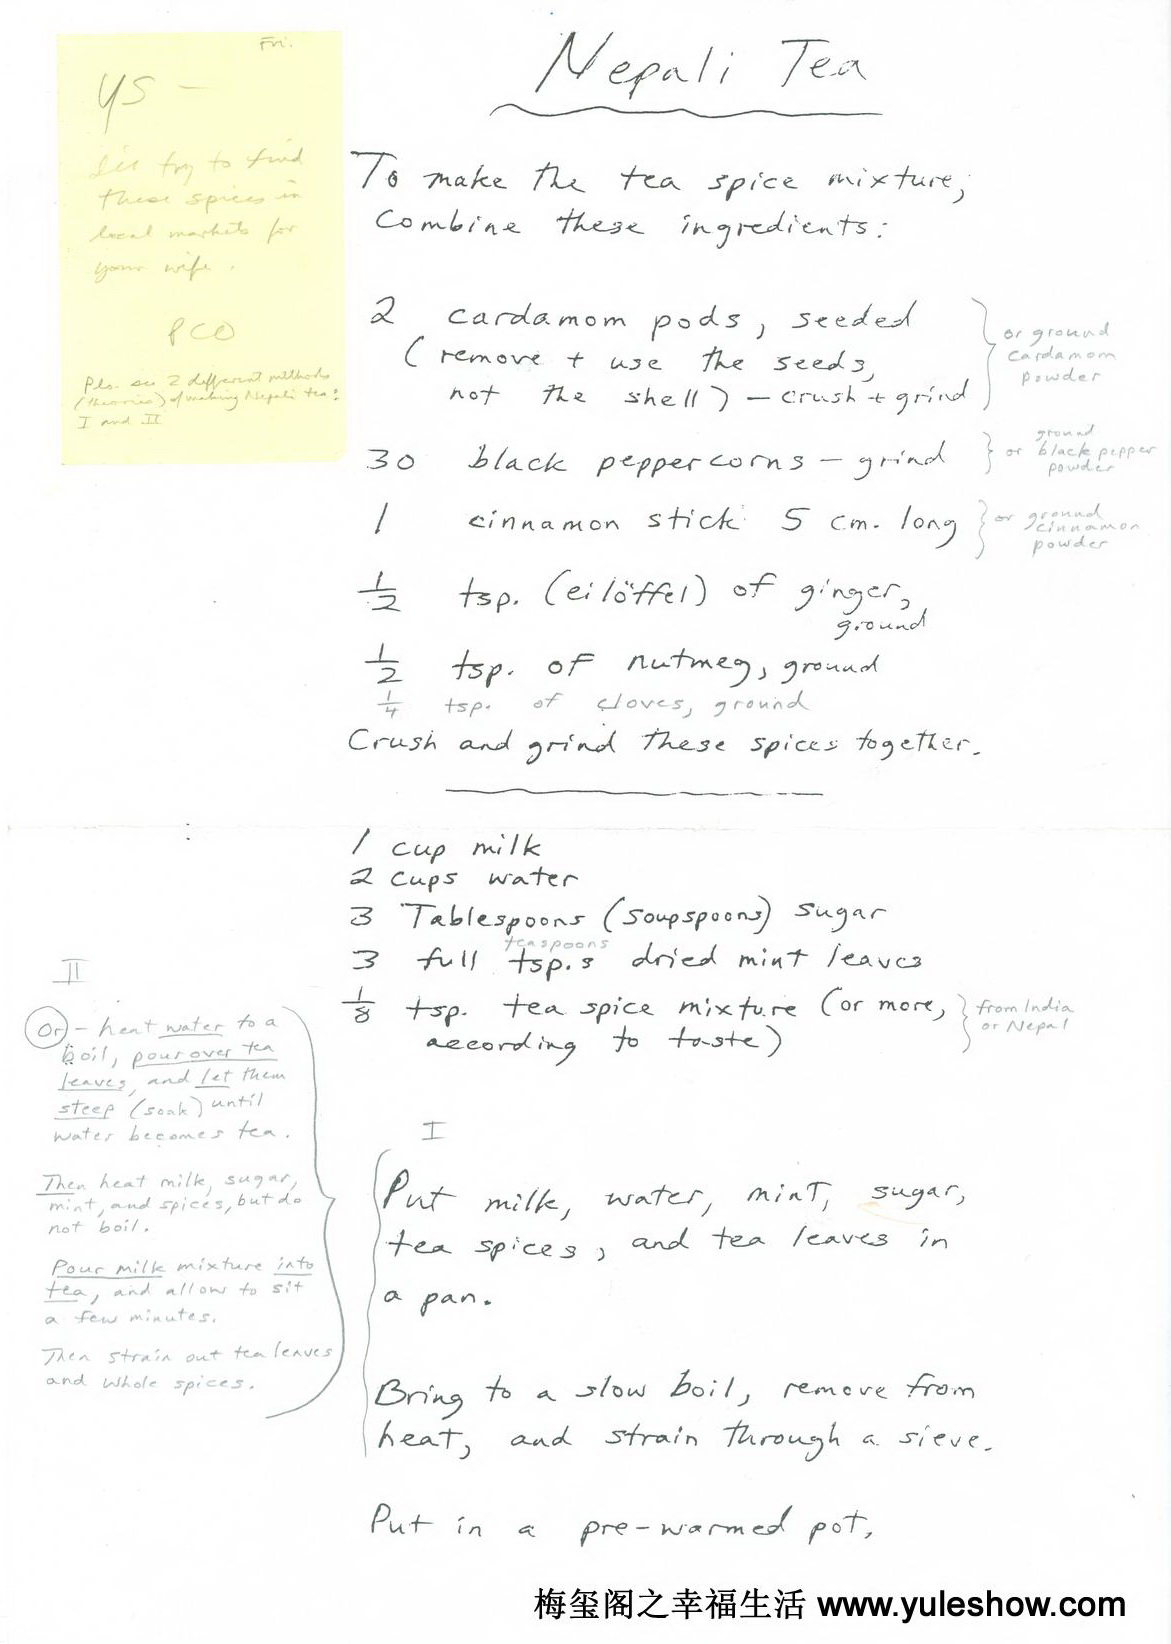 Fri.
YS —
I'll try to find
these spices in
local markets for
your wife.
PCO
Pls. see 2 different methods
(theories) of making Nepali tea:
I and II
Nepali Tea
To make the tea spice mixture,
combine these ingredients:
2 cardamom pods, seeded
(remove + use the seeds,
not the shell) – crush + grind
or ground
cardamom
powder
30 black peppercorns – grind
or ground
black pepper
powder
1 cinnamon stick 5 cm. long
or ground
cinnamon
powder
1/2 tsp. (eilöffel) of ginger,
ground
1/2 tsp. of nutmeg, ground
1/4 tsp. of cloves, ground
Crush and grind these spices together.
1 cup milk
2 cups water
3 Tablespoons (soupspoons) sugar
teaspoons
3 full tsp.s dried mint leaves
1/8 tsp. tea spice mixture (or more,
according to taste)
from India
or Nepal
I
Put milk, water, mint, sugar,
tea spices, and tea leaves in
a pan.
Bring to a slow boil, remove from
heat, and strain through a sieve.
Put in a pre-warmed pot.
II
Or – heat water to a
boil, pour over tea
leaves, and let them
steep (soak) until
water becomes tea.
Then heat milk, sugar,
mint, and spices, but do
not boil.
Pour milk mixture into
tea, and allow to sit
a few minutes.
Then strain out tea leaves
and whole spices.
梅玺阁之幸福生活 www.yuleshow.com